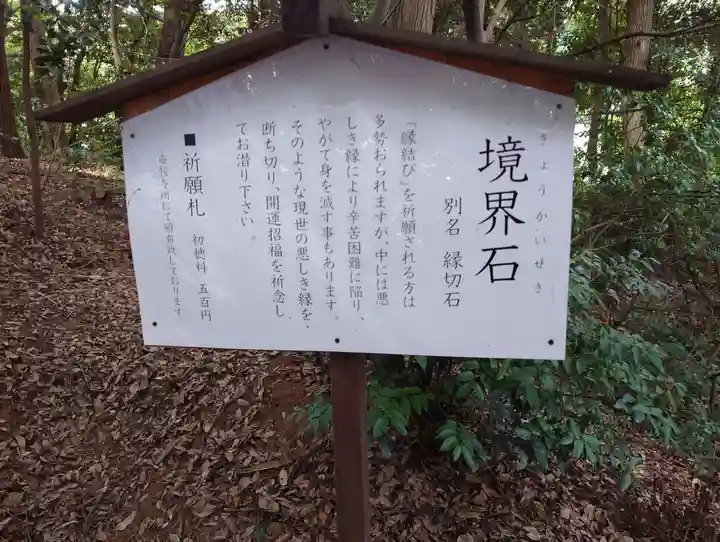 きょうかいせき
境界石
別名 縁切石
『縁結び』を祈願される方は
多勢おられますが、中には悪
しき縁により辛苦困難に陥り、
やがて身を滅す事もあります。
そのような現世の悪しき縁を、
断ち切り、開運招福を祈念し
てお潜り下さい。
■祈願札 初穂料 五百円
※授与所にて頒布致しております